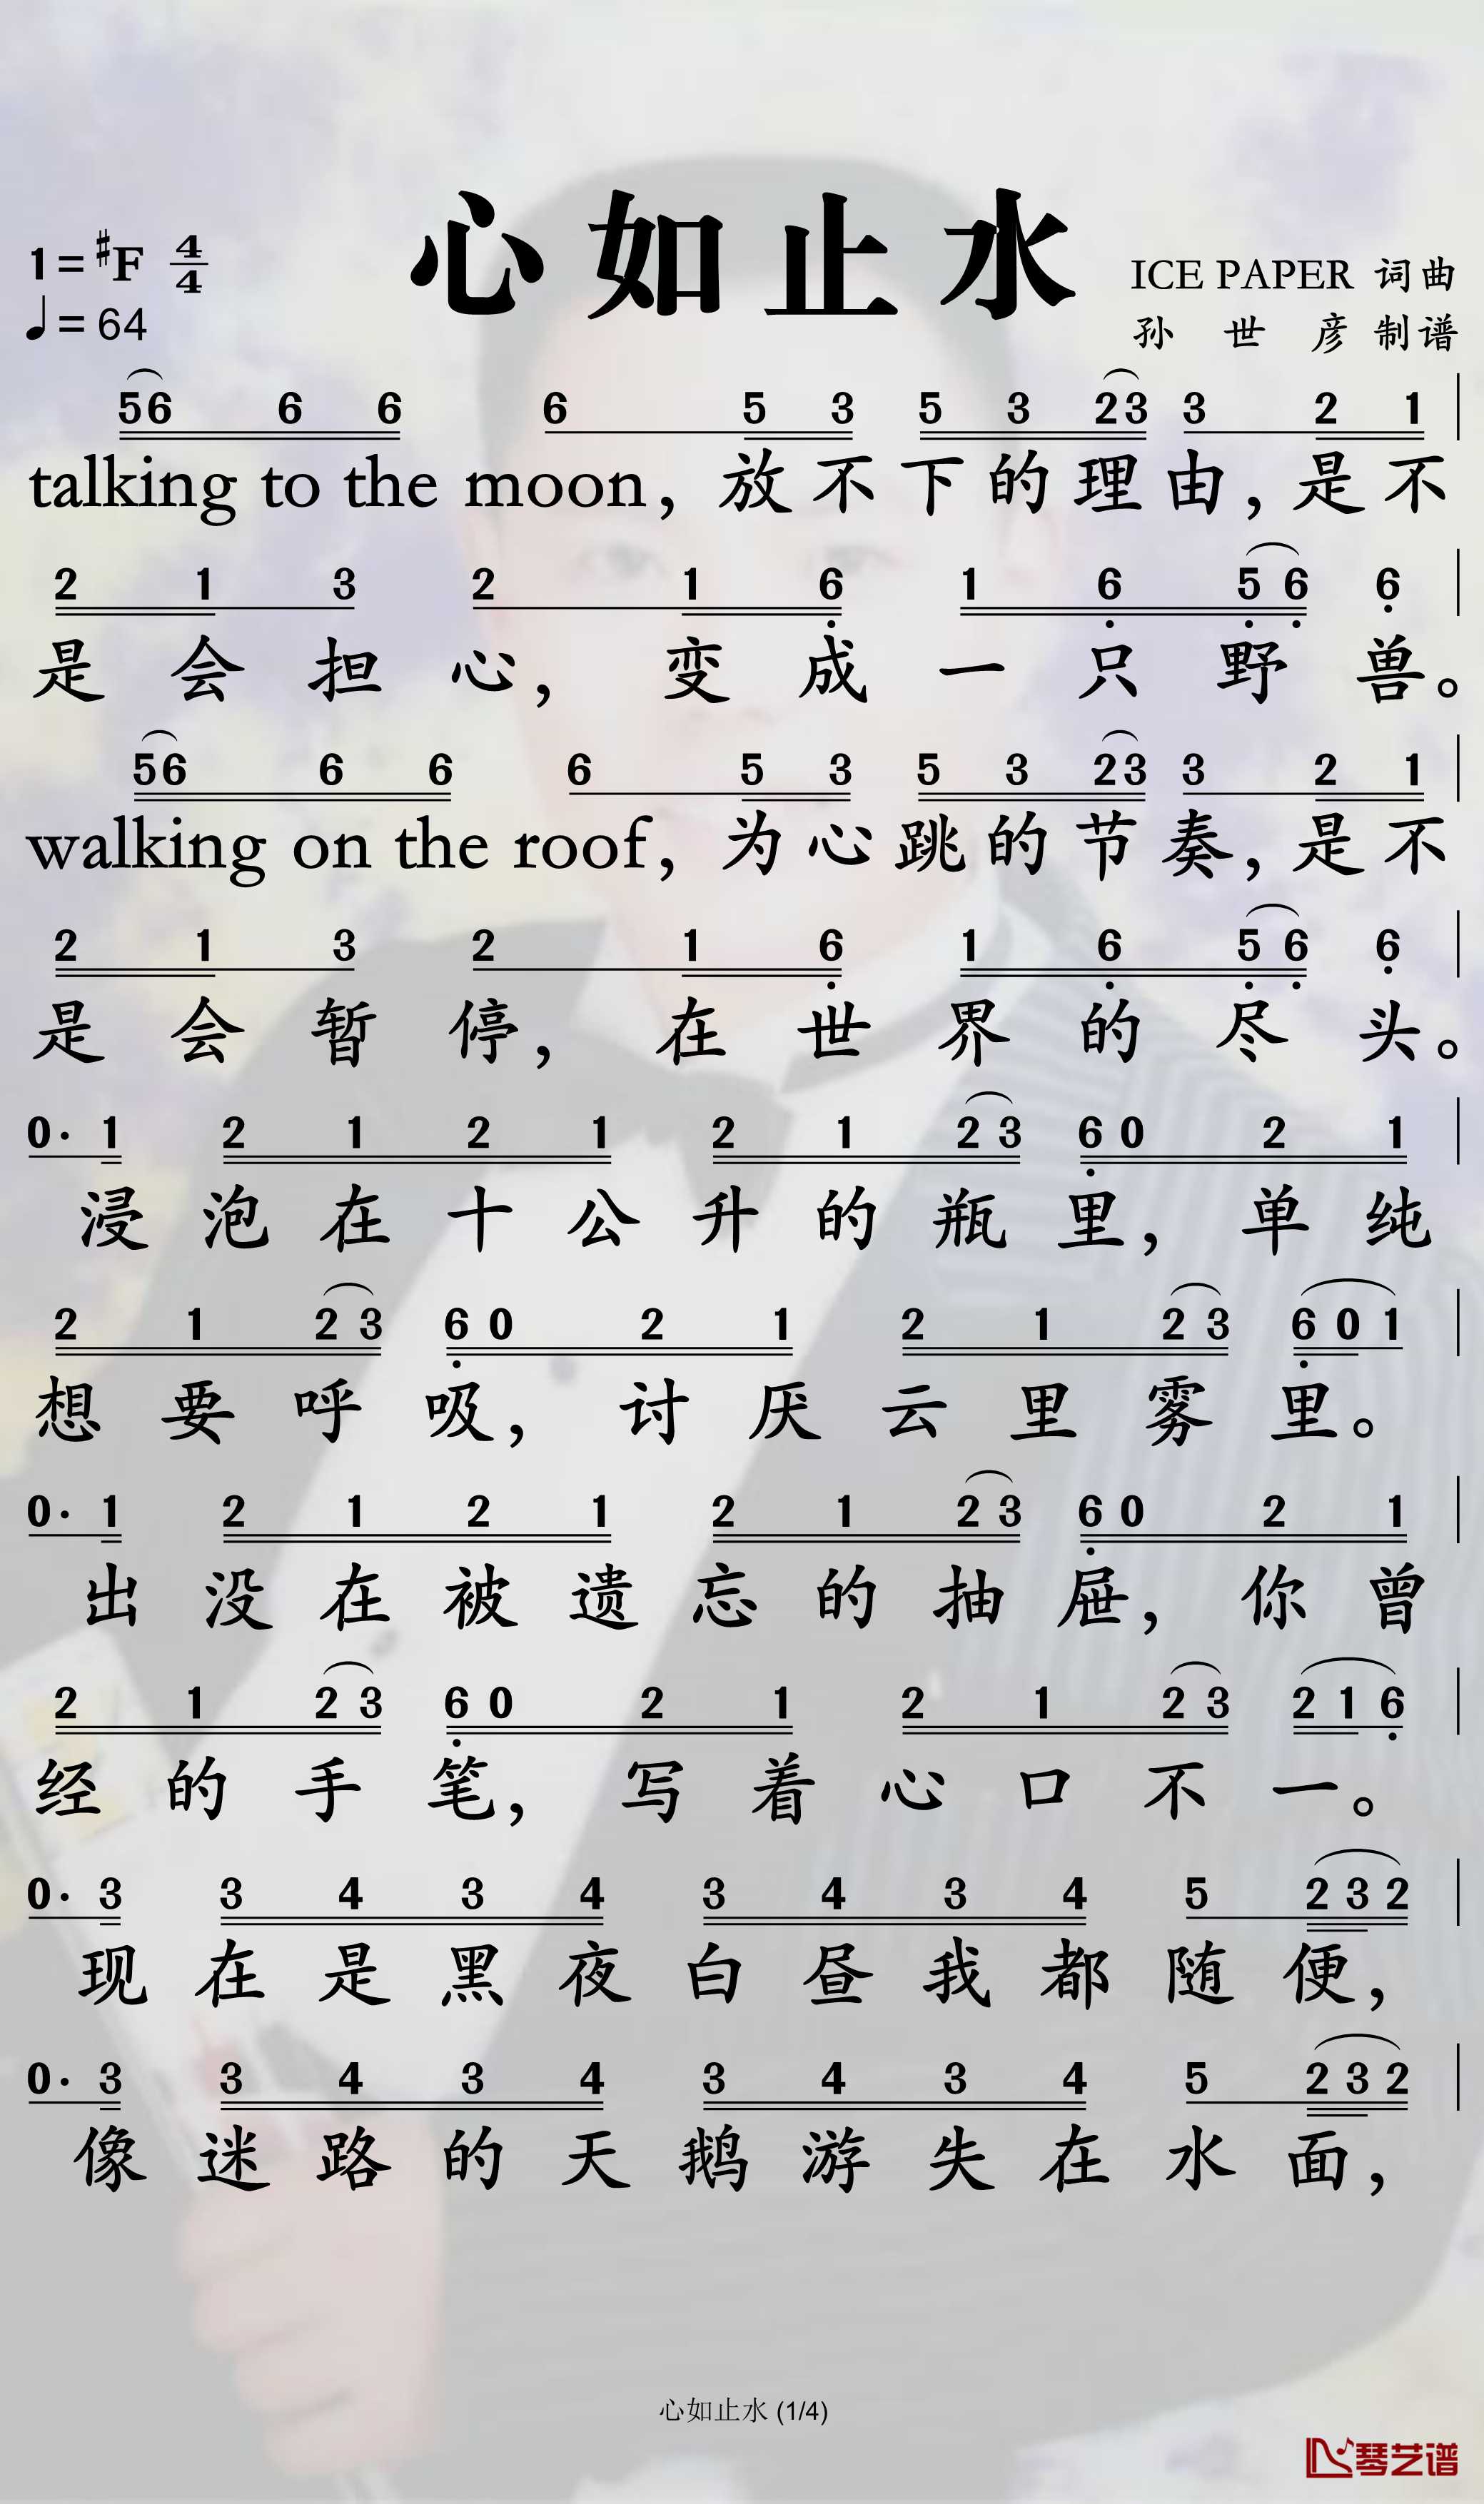 心如止水
1=#F 4/4
♩=64
ICE PAPER 词曲
孙 世 彦 制谱
56 6 6 6 5 3 5 3 23 3 2 1
talking to the moon，放不下的理由，是不
2 1 3 2 1 6 1 6 5 6 6
是会担心，变成一只野兽。
56 6 6 6 5 3 5 3 23 3 2 1
walking on the roof，为心跳的节奏，是不
2 1 3 2 1 6 1 6 5 6 6
是会暂停，在世界的尽头。
0· 1 2 1 2 1 2 1 2 3 6 0 2 1
浸泡在十公升的瓶里，单纯
2 1 2 3 6 0 2 1 2 1 2 3 6 0 1
想要呼吸，讨厌云里雾里。
0· 1 2 1 2 1 2 1 2 3 6 0 2 1
出没在被遗忘的抽屉，你曾
2 1 2 3 6 0 2 1 2 1 2 3 2 1 6
经的手笔，写着心口不一。
0· 3 3 4 3 4 3 4 3 4 5 2 3 2
现在是黑夜白昼我都随便，
0· 3 3 4 3 4 3 4 3 4 5 2 3 2
像迷路的天鹅游失在水面，
心如止水 (1/4)
琴艺谱